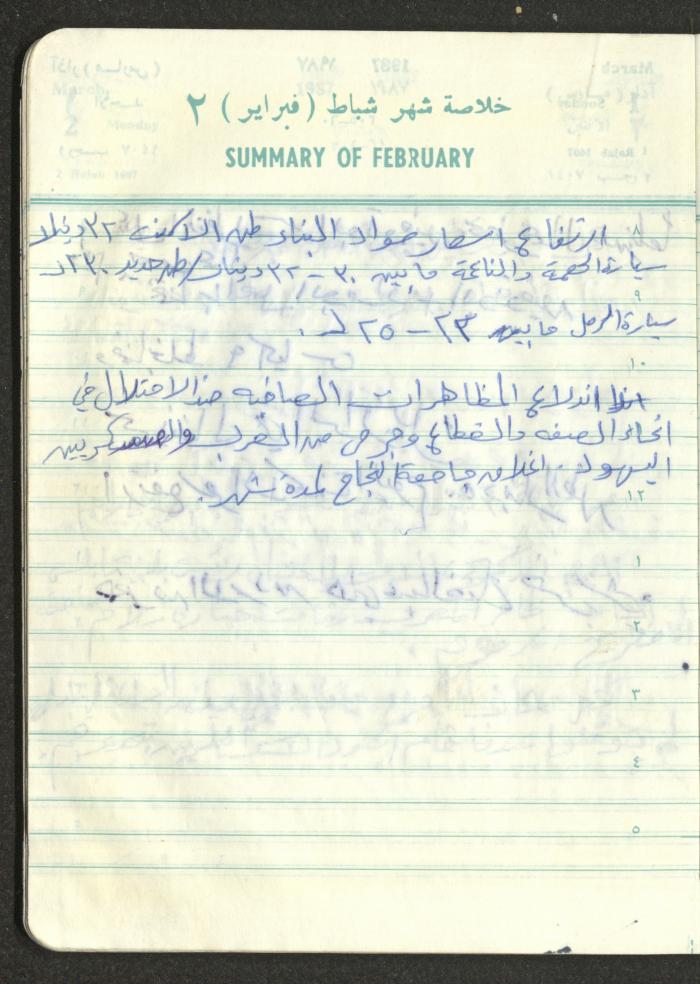 خلاصة شهر شباط (فبراير) ٢
SUMMARY OF FEBRUARY
٨
ارتفاع اسعار مواد البناء طن الاسمنت ٣٢ دينار
سيارة الحصمة والناعمة ما بين ٣٠ - ٣٢ دينار / طن حديد ٢٣٠ د
٩
سيارة الرمل ما بين ٢٣ - ٢٥ د.
١٠
اندلاع المظاهرات الصاخبة ضد الاحتلال في
انحاء الضفة والقطاع وجرحى من العرب والعسكريين
اليهود. اغلاق جامعة النجاح لمدة شهر.
١٢
١
٢
٣
٤
٥